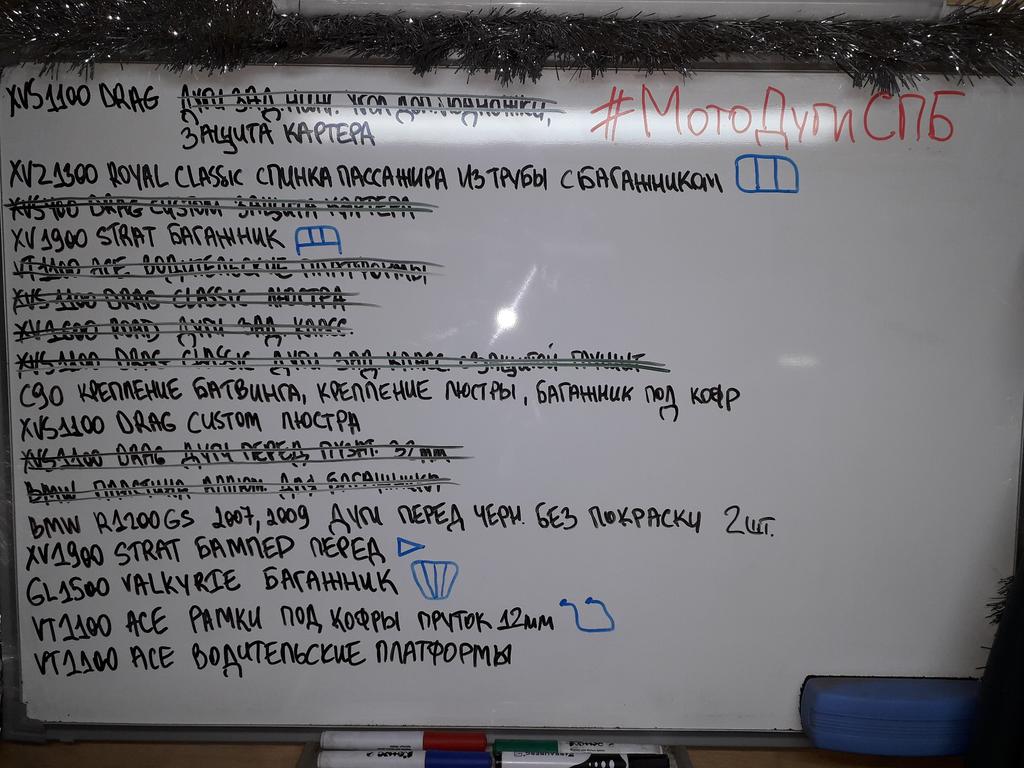 XVS1100 DRAG ДУГИ ЗАД НИЖ. #МотоДугиСПБ
ЗАЩИТА КАРТЕРА
XVZ1300 ROYAL CLASSIC СПИНКА ПАССАЖИРА ИЗ ТРУБЫ С БАГАЖНИКОМ
XVS400 DRAG CUSTOM ЗАЩИТА КАРТЕРА
XV1900 STRAT БАГАЖНИК
VT1100 ACE ВОДИТЕЛЬСКИЕ ПЛАТФОРМЫ
XVS1100 DRAG CLASSIC ЛЮСТРА
XV1600 ROAD ДУГИ ЗАД КЛАСС.
XVS1100 DRAG CLASSIC ДУГИ ЗАД КЛАСС С ЗАЩИТОЙ
C90 КРЕПЛЕНИЕ БАТВИНГА, КРЕПЛЕНИЕ ЛЮСТРЫ, БАГАЖНИК ПОД КОФР
XVS1100 DRAG CUSTOM ЛЮСТРА
XVS1100 DRAG ДУГИ ПЕРЕД ПУЗАТ. 32мм
BMW ПЛАСТИНА АЛЛЮМ. ДЛЯ БАГАЖНИКА
BMW R1200GS 2007, 2009 ДУГИ ПЕРЕД ЧЕРН. БЕЗ ПОКРАСКИ 2шт.
XV1900 STRAT БАМПЕР ПЕРЕД
GL1500 VALKYRIE БАГАЖНИК
VT1100 ACE РАМКИ ПОД КОФРЫ ПРУТОК 12мм
VT1100 ACE ВОДИТЕЛЬСКИЕ ПЛАТФОРМЫ